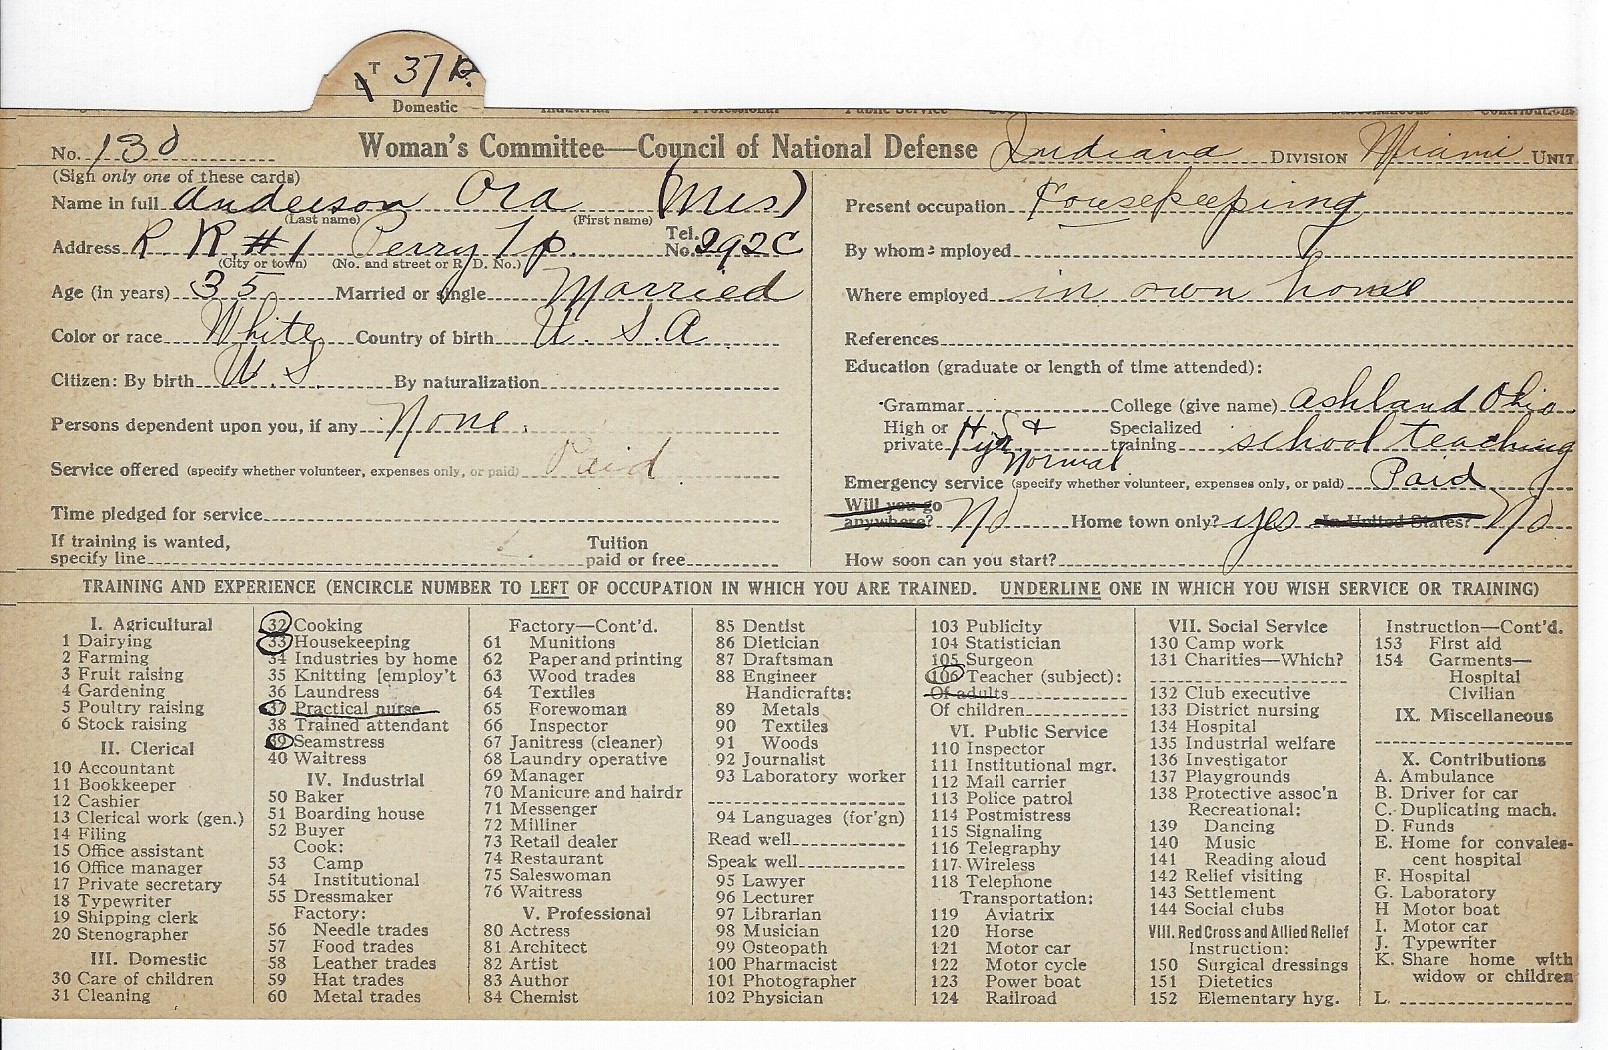 T 37
Domestic
No. 130 Woman's Committee—Council of National Defense Indiana DIVISION Miami UNIT
(Sign only one of these cards)
Name in full Anderson Ora (Mrs)
(Last name) (First name)
Address R. R #1 Perry Tp. Tel. No. 292C
(City or town) (No. and street or R. D. No.)
Age (in years) 35 Married or single Married
Color or race White Country of birth U. S. A.
Citizen: By birth U. S. By naturalization
Persons dependent upon you, if any None.
Service offered (specify whether volunteer, expenses only, or paid) Paid
Time pledged for service
If training is wanted, specify line Tuition paid or free
Present occupation Housekeeping
By whom employed
Where employed in own home
References
Education (graduate or length of time attended):
Grammar College (give name) Ashland Ohio
High or private H S + Normal Specialized training school teaching
Emergency service (specify whether volunteer, expenses only, or paid) Paid
Will you go anywhere? No Home town only? yes In United States? No
How soon can you start?
TRAINING AND EXPERIENCE (ENCIRCLE NUMBER TO LEFT OF OCCUPATION IN WHICH YOU ARE TRAINED. UNDERLINE ONE IN WHICH YOU WISH SERVICE OR TRAINING)
I. Agricultural
1 Dairying
2 Farming
3 Fruit raising
4 Gardening
5 Poultry raising
6 Stock raising
II. Clerical
10 Accountant
11 Bookkeeper
12 Cashier
13 Clerical work (gen.)
14 Filing
15 Office assistant
16 Office manager
17 Private secretary
18 Typewriter
19 Shipping clerk
20 Stenographer
III. Domestic
30 Care of children
31 Cleaning
32 Cooking
33 Housekeeping
34 Industries by home
35 Knitting [employ't
36 Laundress
37 Practical nurse
38 Trained attendant
39 Seamstress
40 Waitress
IV. Industrial
50 Baker
51 Boarding house
52 Buyer
Cook:
53 Camp
54 Institutional
55 Dressmaker
Factory:
56 Needle trades
57 Food trades
58 Leather trades
59 Hat trades
60 Metal trades
Factory—Cont'd.
61 Munitions
62 Paper and printing
63 Wood trades
64 Textiles
65 Forewoman
66 Inspector
67 Janitress (cleaner)
68 Laundry operative
69 Manager
70 Manicure and hairdr
71 Messenger
72 Milliner
73 Retail dealer
74 Restaurant
75 Saleswoman
76 Waitress
V. Professional
80 Actress
81 Architect
82 Artist
83 Author
84 Chemist
85 Dentist
86 Dietician
87 Draftsman
88 Engineer
Handicrafts:
89 Metals
90 Textiles
91 Woods
92 Journalist
93 Laboratory worker
94 Languages (for'gn)
Read well
Speak well
95 Lawyer
96 Lecturer
97 Librarian
98 Musician
99 Osteopath
100 Pharmacist
101 Photographer
102 Physician
103 Publicity
104 Statistician
105 Surgeon
106 Teacher (subject):
Of adults
Of children
VI. Public Service
110 Inspector
111 Institutional mgr.
112 Mail carrier
113 Police patrol
114 Postmistress
115 Signaling
116 Telegraphy
117 Wireless
118 Telephone
Transportation:
119 Aviatrix
120 Horse
121 Motor car
122 Motor cycle
123 Power boat
124 Railroad
VII. Social Service
130 Camp work
131 Charities—Which?
132 Club executive
133 District nursing
134 Hospital
135 Industrial welfare
136 Investigator
137 Playgrounds
138 Protective assoc'n
Recreational:
139 Dancing
140 Music
141 Reading aloud
142 Relief visiting
143 Settlement
144 Social clubs
VIII. Red Cross and Allied Relief
Instruction:
150 Surgical dressings
151 Dietetics
152 Elementary hyg.
Instruction—Cont'd.
153 First aid
154 Garments—
Hospital
Civilian
IX. Miscellaneous
X. Contributions
A. Ambulance
B. Driver for car
C. Duplicating mach.
D. Funds
E. Home for convales-
cent hospital
F. Hospital
G. Laboratory
H Motor boat
I. Motor car
J. Typewriter
K. Share home with
widow or children
L.